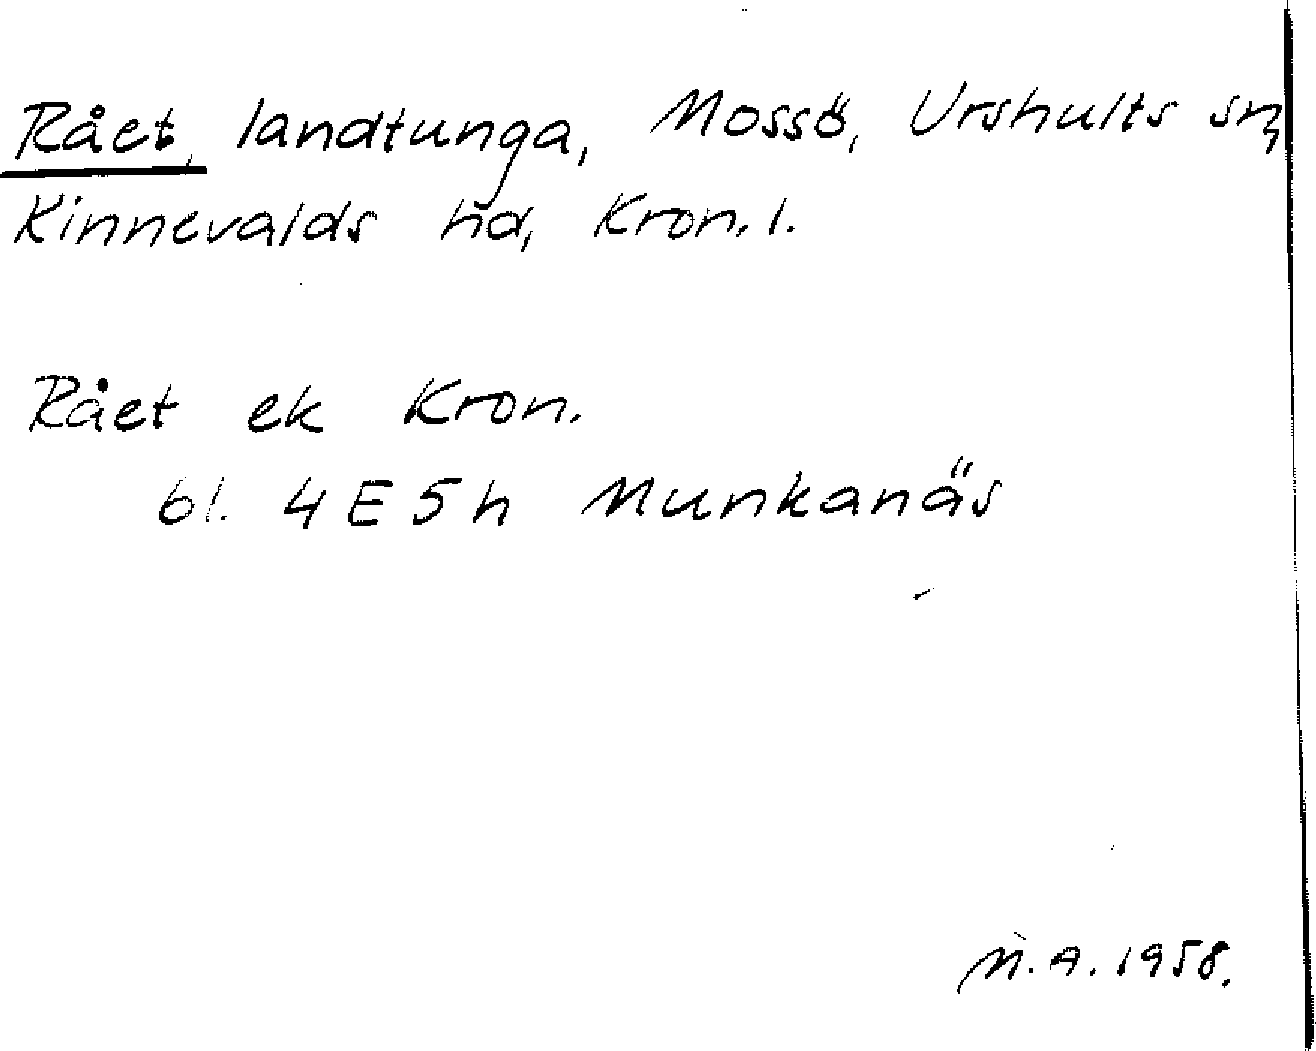 Rået, landtunga, Mossö, Urshults sn,
Kinnevalds hd, Kron. l.
Rået ek Kron.
bl. 4 E 5 h Munkanäs
M.A. 1958.